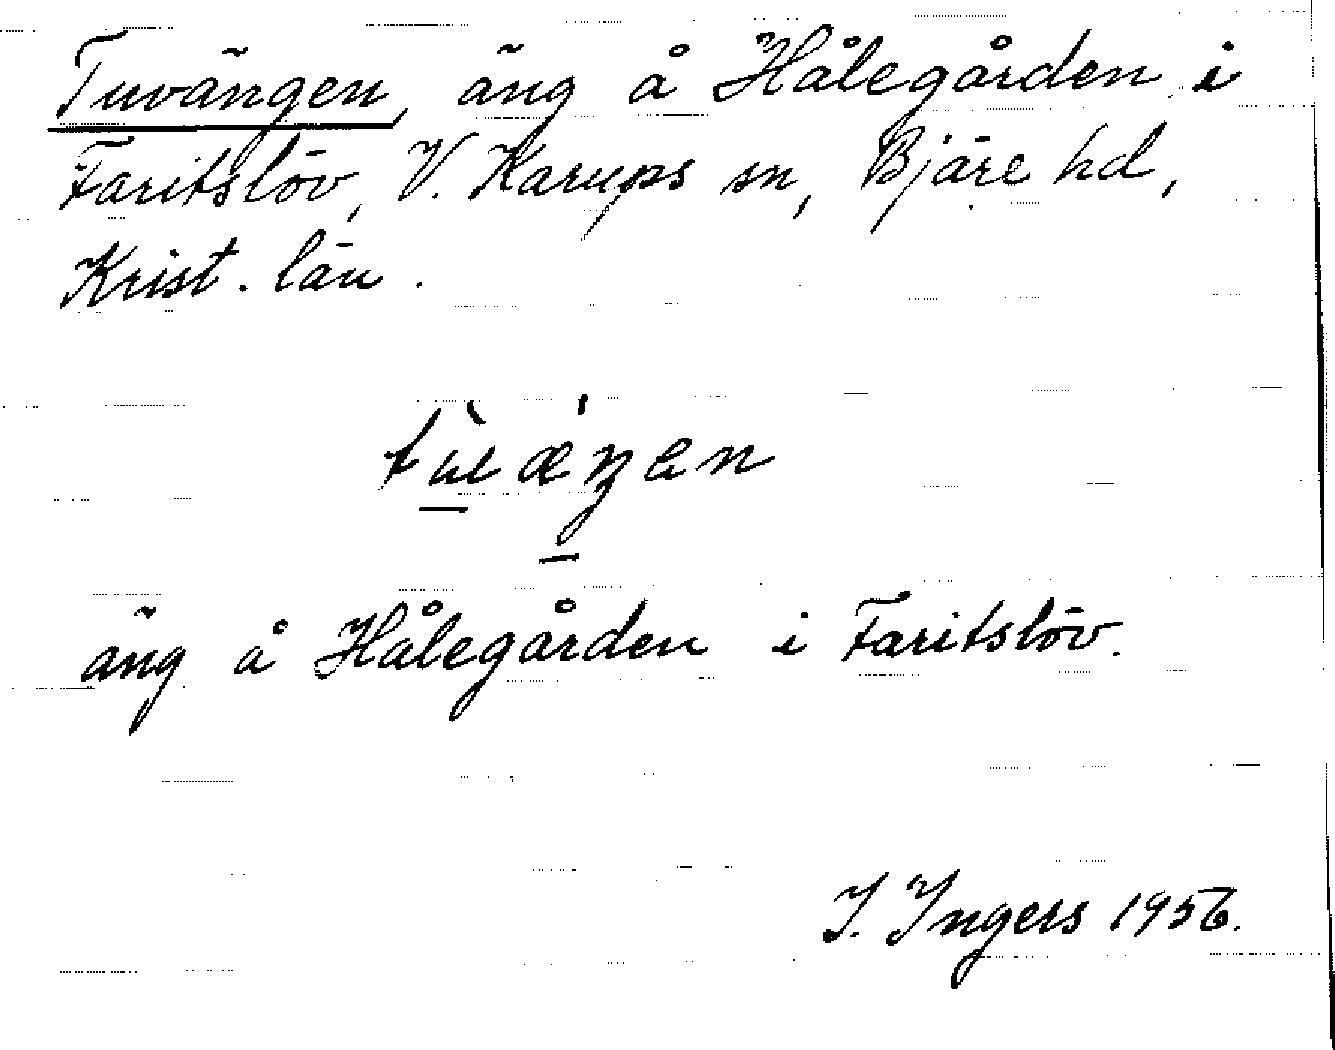 Tuvängen, äng å Hålegården i
Faritslöv, V. Karups sn, Bjäre hd,
Krist. län.
äng å Hålegården i Faritslöv.
I. Ingers 1956.